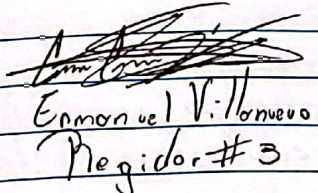 Enmanuel Villanueva
Regidor #3